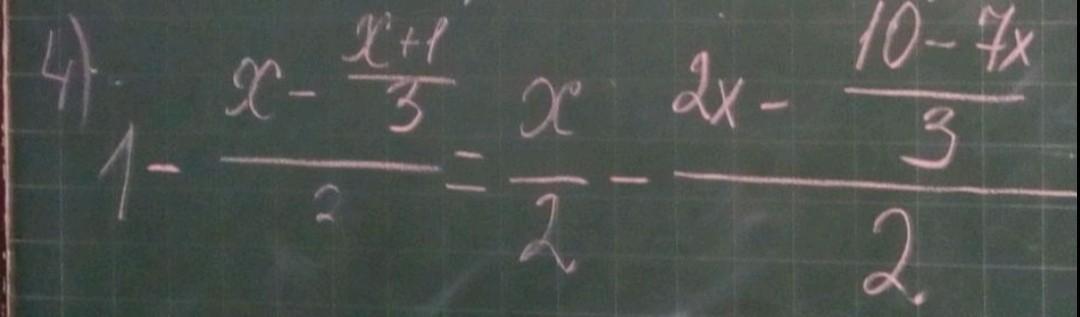 4) 1 - \frac{x - \frac{x+1}{3}}{2} = \frac{x}{2} - \frac{2x - \frac{10-7x}{3}}{2}